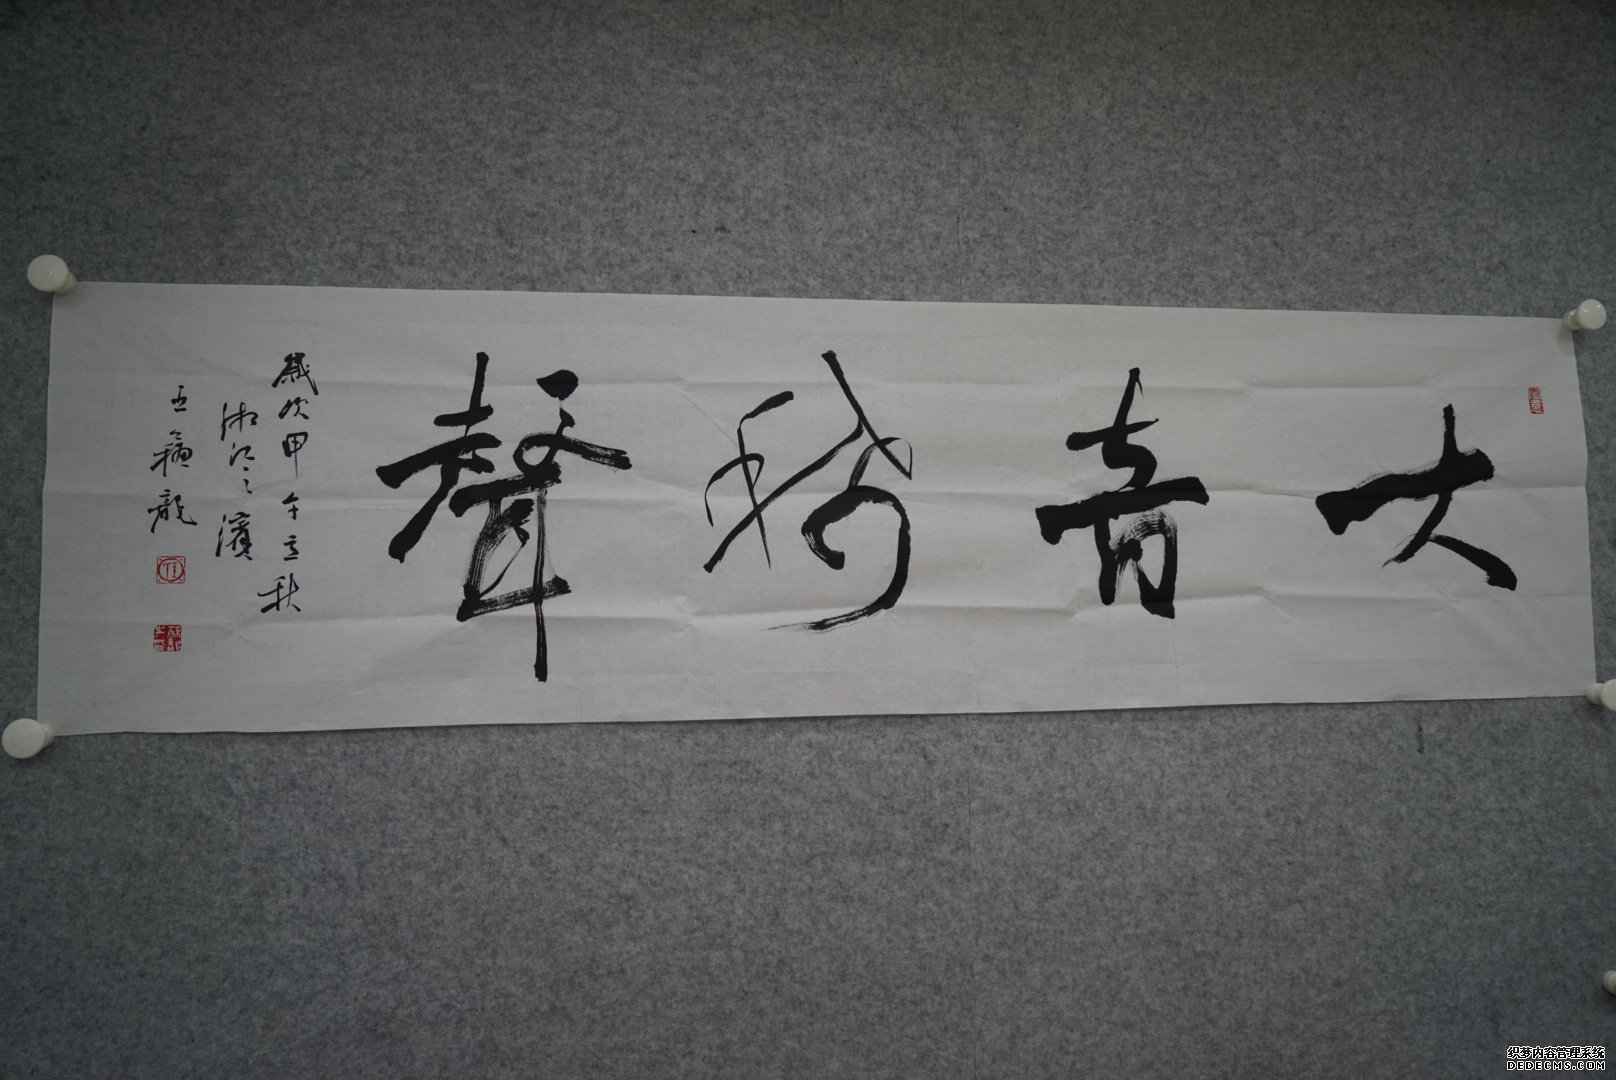 大音希聲
歲次甲午立秋
湘江之濱
龍
织梦内容管理系统
DEDECMS.COM